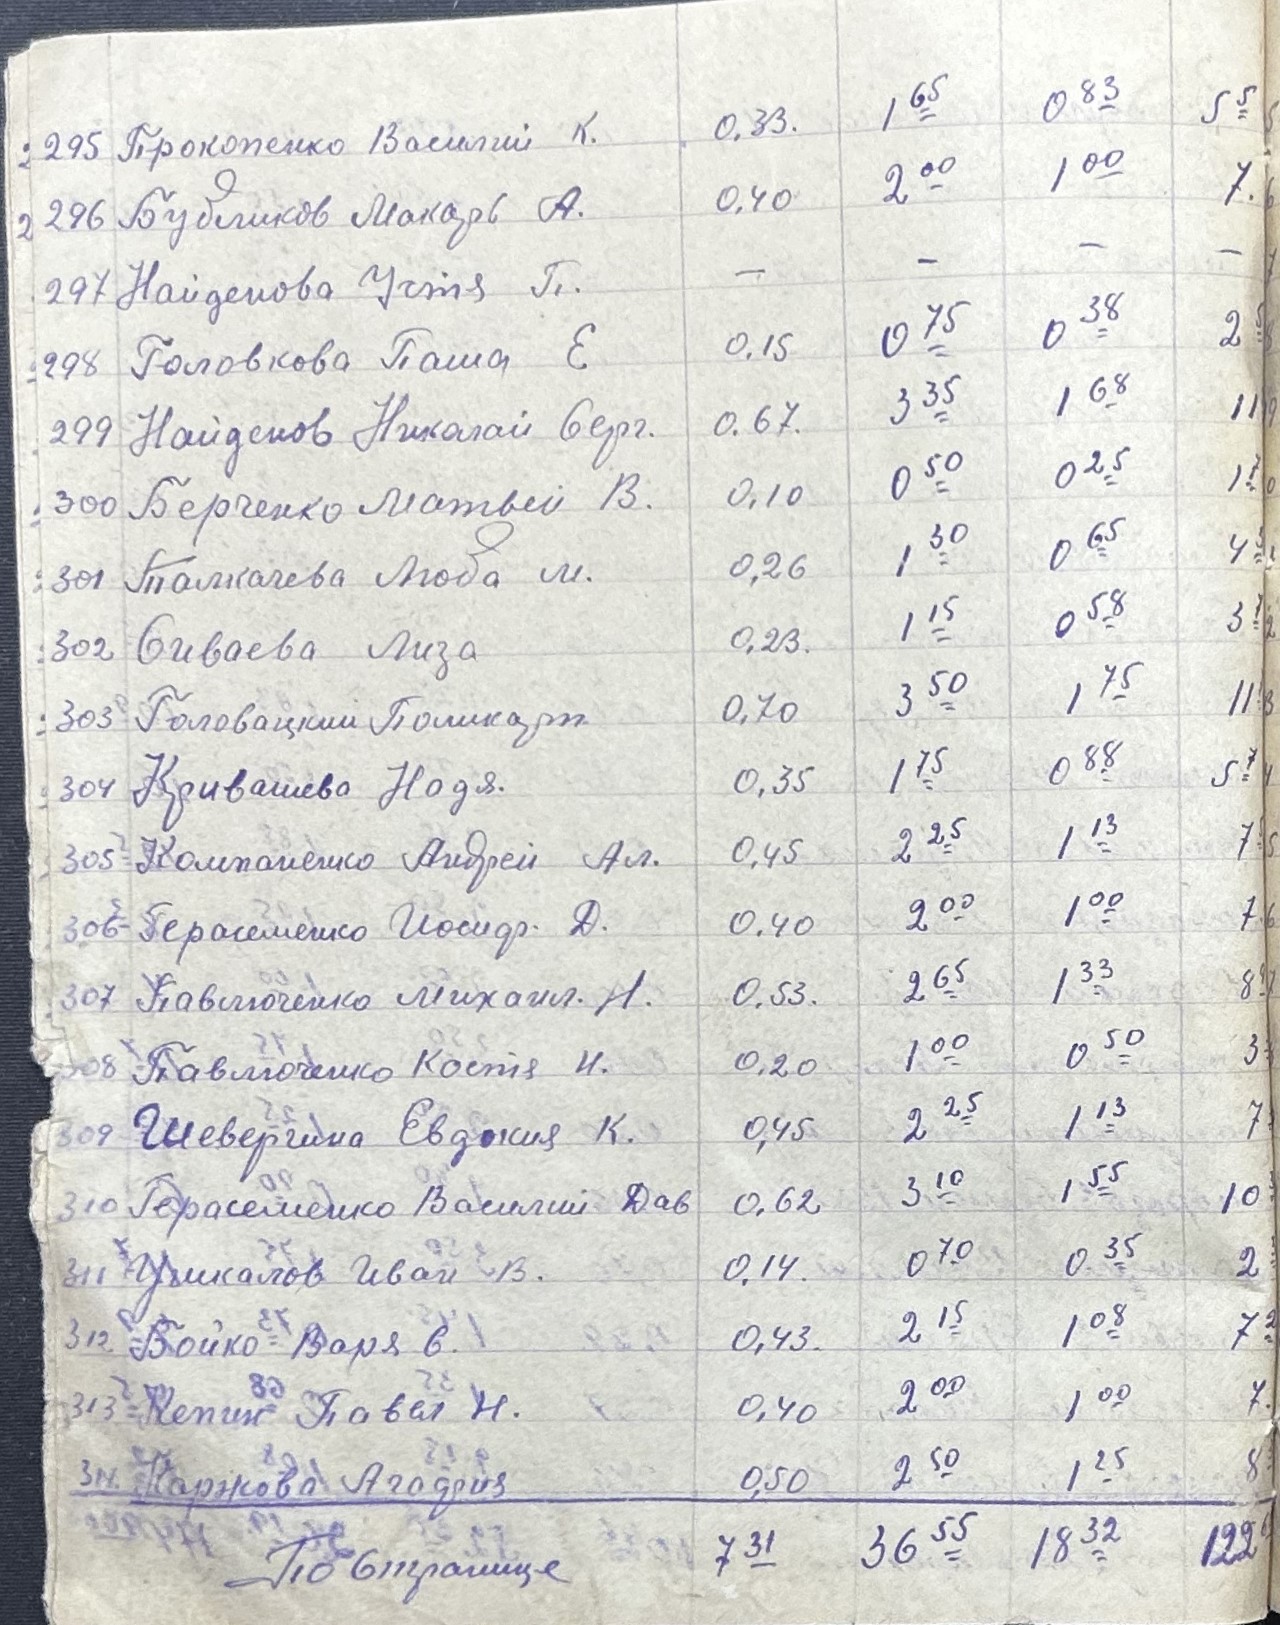 295 Прокопенко Василий К. 0,33. 1 65 0 83 5 5
296 Бубликов Макарь А. 0,40 2 00 1 00 7.
297 Найденова Устя П. — — — —
298 Головкова Паша Е 0,15 0 75 0 38 2
299 Найденов Николай Серг. 0.67. 3 35 1 68 11
300 Берченко Матвей В. 0,10 0 50 0 25 1 7
301 Талкачева Люба М. 0,26 1 30 0 65 4
302 Сиваева Лиза 0,23. 1 15 0 58 3 7
303 Головацкий Поликарп 0,70 3 50 1 75 11
304 Кривашева Надя. 0,35 1 75 0 88 5 7
305 Компаненко Андрей Ал. 0,45 2 25 1 13 7
306 Герасеменко Иосиф. Д. 0.40 2 00 1 00 7
307 Павлюченко Михаил. Н. 0,53. 2 65 1 33 8
308 Павлюченко Костя И. 0,20 1 00 0 50 3
309 Шевергина Евдокия К. 0,45 2 25 1 13 7
310 Герасеменко Василий Дав 0,62 3 10 1 55 10
311 Чикалов Иван В. 0,14. 0 70 0 35 2
312. Бойко Варя С. 0,43. 2 15 1 08 7 2
313 Кепин Павел Н. 0,40 2 00 1 00 7.
314. Каржова Агафия 0,50 2 50 1 25 8
По странице 7 31 36 55 18 32 122